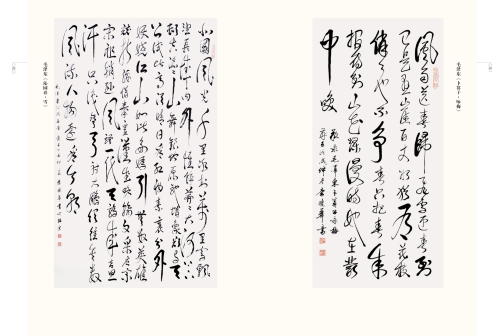 毛泽东《沁园春·雪》
北国风光千里冰封万里雪飘
望长城内外惟余莽莽大河上下
顿失滔滔山舞银蛇原驰蜡象欲与天
公试比高须晴日看红装素裹分外
妖娆江山如此多娇引无数英雄
竞折腰惜秦皇汉武略输文采唐宗
宋祖稍逊风骚一代天骄成吉思
汗只识弯弓射大雕俱往矣数
风流人物还看今朝
毛泽东《卜算子·咏梅》
风雨送春归飞雪迎春到
已是悬崖百丈冰犹有花枝
俏俏也不争春只把春来
报待到山花烂漫时她在丛
中笑